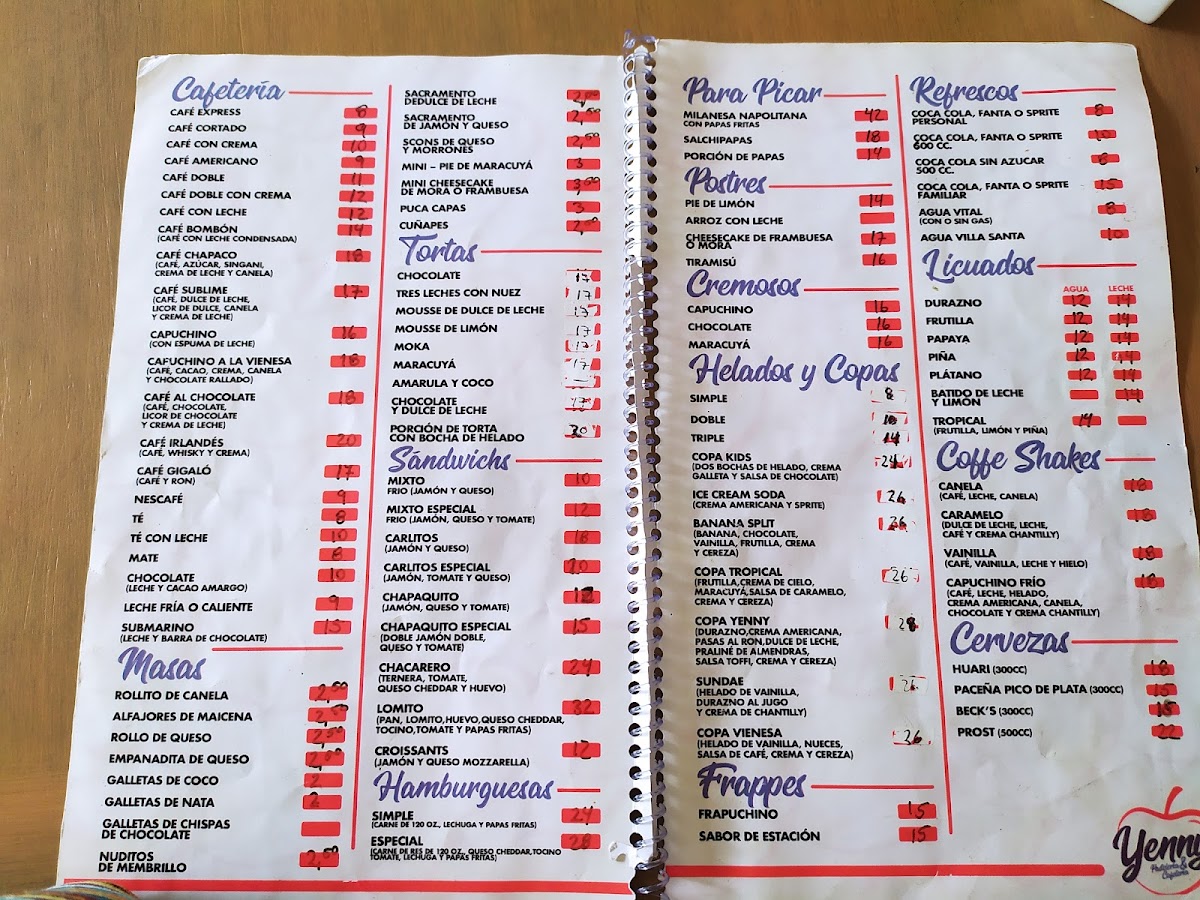 Cafetería
CAFÉ EXPRESS 8
CAFÉ CORTADO 9
CAFÉ CON CREMA 10
CAFÉ AMERICANO 9
CAFÉ DOBLE 11
CAFÉ DOBLE CON CREMA 12
CAFÉ CON LECHE 12
CAFÉ BOMBÓN 14
(CAFÉ CON LECHE CONDENSADA)
CAFÉ CHAPACO 18
(CAFÉ, AZÚCAR, SINGANI,
CREMA DE LECHE Y CANELA)
CAFÉ SUBLIME 17
(CAFÉ, DULCE DE LECHE,
LICOR DE DULCE, CANELA
Y CREMA DE LECHE)
CAPUCHINO 16
(CON ESPUMA DE LECHE)
CAPUCHINO A LA VIENESA 18
(CAFÉ, CACAO, CREMA, CANELA
Y CHOCOLATE RALLADO)
CAFÉ AL CHOCOLATE 18
(CAFÉ, CHOCOLATE,
LICOR DE CHOCOLATE
Y CREMA DE LECHE)
CAFÉ IRLANDÉS 20
(CAFÉ, WHISKY Y CREMA)
CAFÉ GIGALÓ 17
(CAFÉ Y RON)
NESCAFÉ 9
TÉ 8
TÉ CON LECHE 10
MATE 8
CHOCOLATE 10
(LECHE Y CACAO AMARGO)
LECHE FRÍA O CALIENTE 9
SUBMARINO 13
(LECHE Y BARRA DE CHOCOLATE)
Masas
ROLLITO DE CANELA 2,50
ALFAJORES DE MAICENA 2,50
ROLLO DE QUESO 2,50
EMPANADITA DE QUESO 2,50
GALLETAS DE COCO 2
GALLETAS DE NATA 2
GALLETAS DE CHISPAS
DE CHOCOLATE
NUDITOS 2,50
DE MEMBRILLO
SACRAMENTO
DEDULCE DE LECHE
SACRAMENTO 2,50
DE JAMÓN Y QUESO
SCONS DE QUESO 2,50
Y MORRONES
MINI - PIE DE MARACUYÁ 3
MINI CHEESECAKE 3,50
DE MORA O FRAMBUESA
PUCA CAPAS 3
CUÑAPES 2,50
Tortas
CHOCOLATE 17
TRES LECHES CON NUEZ 17
MOUSSE DE DULCE DE LECHE 17
MOUSSE DE LIMÓN 17
MOKA 17
MARACUYÁ 17
AMARULA Y COCO
CHOCOLATE 17
Y DULCE DE LECHE
PORCIÓN DE TORTA 30
CON BOCHA DE HELADO
Sándwichs
MIXTO 10
FRIO (JAMÓN Y QUESO)
MIXTO ESPECIAL 12
FRIO (JAMÓN, QUESO Y TOMATE)
CARLITOS 18
(JAMÓN Y QUESO)
CARLITOS ESPECIAL 20
(JAMÓN, TOMATE Y QUESO)
CHAPAQUITO 12
(JAMÓN, QUESO Y TOMATE)
CHAPAQUITO ESPECIAL 15
(DOBLE JAMÓN DOBLE,
QUESO Y TOMATE)
CHACARERO 24
(TERNERA, TOMATE,
QUESO CHEDDAR Y HUEVO)
LOMITO 32
(PAN, LOMITO,HUEVO,QUESO CHEDDAR,
TOCINO,TOMATE Y PAPAS FRITAS)
CROISSANTS 12
(JAMÓN Y QUESO MOZZARELLA)
Hamburguesas
SIMPLE 24
(CARNE DE 120 OZ., LECHUGA Y PAPAS FRITAS)
ESPECIAL 28
(CARNE DE RES DE 120 OZ., QUESO CHEDDAR,TOCINO
TOMATE, LECHUGA Y PAPAS FRITAS)
Para Picar
MILANESA NAPOLITANA 42
CON PAPAS FRITAS
SALCHIPAPAS 18
PORCIÓN DE PAPAS 14
Postres
PIE DE LIMÓN 14
ARROZ CON LECHE
CHEESECAKE DE FRAMBUESA 17
O MORA
TIRAMISÚ 16
Cremosos
CAPUCHINO 16
CHOCOLATE 16
MARACUYÁ 16
Helados y Copas
SIMPLE 8
DOBLE 10
TRIPLE 14
COPA KIDS 24
(DOS BOCHAS DE HELADO, CREMA
GALLETA Y SALSA DE CHOCOLATE)
ICE CREAM SODA 26
(CREMA AMERICANA Y SPRITE)
BANANA SPLIT 26
(BANANA, CHOCOLATE,
VAINILLA, FRUTILLA, CREMA
Y CEREZA)
COPA TROPICAL 26
(FRUTILLA,CREMA DE CIELO,
MARACUYÁ,SALSA DE CARAMELO,
CREMA Y CEREZA)
COPA YENNY 28
(DURAZNO,CREMA AMERICANA,
PASAS AL RON,DULCE DE LECHE,
PRALINÉ DE ALMENDRAS,
SALSA TOFFI, CREMA Y CEREZA)
SUNDAE 26
(HELADO DE VAINILLA,
DURAZNO AL JUGO
Y CREMA DE CHANTILLY)
COPA VIENESA 26
(HELADO DE VAINILLA, NUECES,
SALSA DE CAFÉ, CREMA Y CEREZA)
Frappes
FRAPUCHINO 15
SABOR DE ESTACIÓN 15
Refrescos
COCA COLA, FANTA O SPRITE 8
PERSONAL
COCA COLA, FANTA O SPRITE 10
600 CC.
COCA COLA SIN AZUCAR 8
500 CC.
COCA COLA, FANTA O SPRITE 15
FAMILIAR
AGUA VITAL 8
(CON O SIN GAS)
AGUA VILLA SANTA 10
Licuados
AGUA LECHE
DURAZNO 12 14
FRUTILLA 12 14
PAPAYA 12 14
PIÑA 12 14
PLÁTANO 12 14
BATIDO DE LECHE 14
Y LIMÓN
TROPICAL 14
(FRUTILLA, LIMÓN Y PIÑA)
Coffe Shakes
CANELA 18
(CAFÉ, LECHE, CANELA)
CARAMELO 18
(DULCE DE LECHE, LECHE,
CAFÉ Y CREMA CHANTILLY)
VAINILLA 18
(CAFÉ, VAINILLA, LECHE Y HIELO)
CAPUCHINO FRÍO 18
(CAFÉ, LECHE, HELADO,
CREMA AMERICANA, CANELA,
CHOCOLATE Y CREMA CHANTILLY)
Cervezas
HUARI (300CC) 18
PACEÑA PICO DE PLATA (300CC) 15
BECK'S (300CC) 15
PROST (500CC) 22
Yenny
Pastelería &
Cafetería